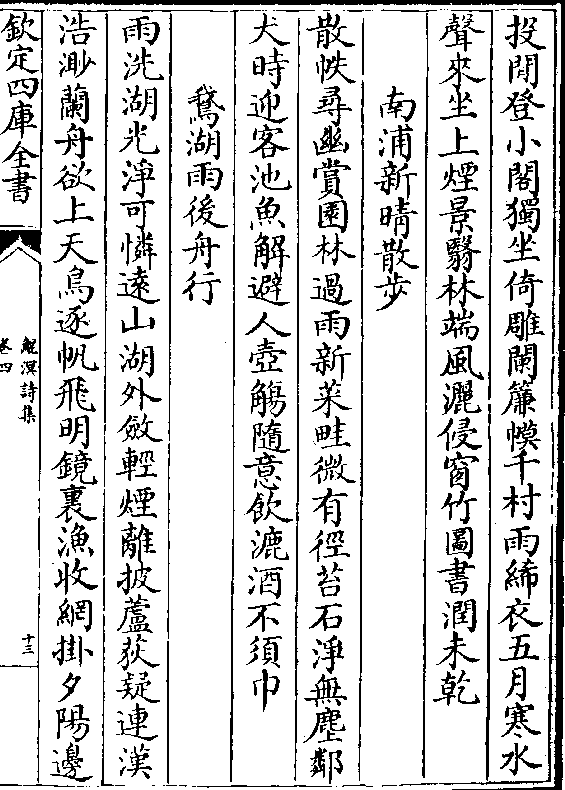 投閒登小閣獨坐倚雕闌簾幙千村雨絺衣五月寒水
聲來坐上煙景翳林端風灑侵窗竹圖書潤未乾
南浦新晴散步
散帙尋幽賞園林過雨新菜畦微有徑苔石淨無塵鄰
犬時迎客池魚解避人壺觴隨意飲漉酒不須巾
鵞湖雨後舟行
雨洗湖光淨可憐遠山湖外斂輕煙離披蘆荻疑連漢
浩渺蘭舟欲上天鳥逐帆飛明鏡裏漁收網掛夕陽邊
欽定四庫全書
鯤溟詩集
卷四
十三